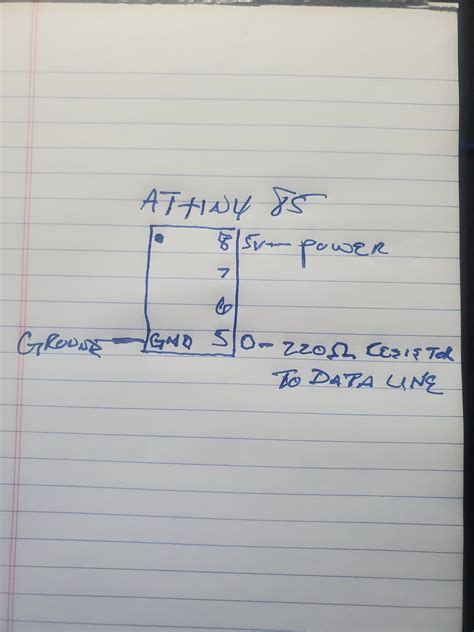 ATTINY 85
8 5V — POWER
7
6
GROUND — GND 5 0 — 220Ω RESISTOR
TO DATA LINE